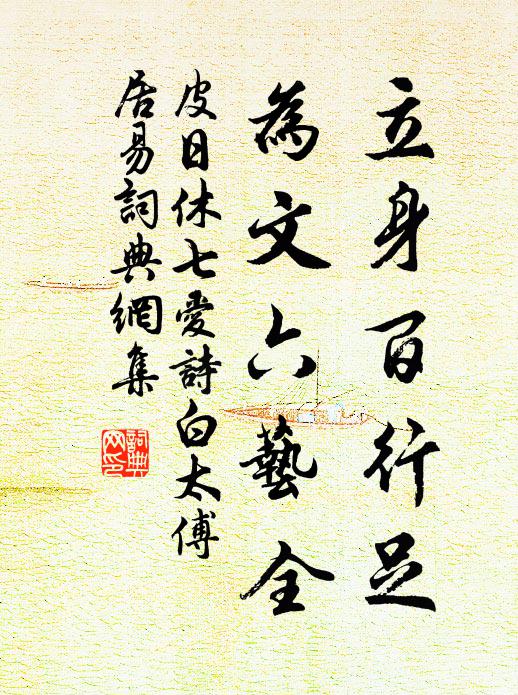 立身百行足
為文六藝全
皮日休七愛詩白太傅
居易詞典網集
詞典
网印